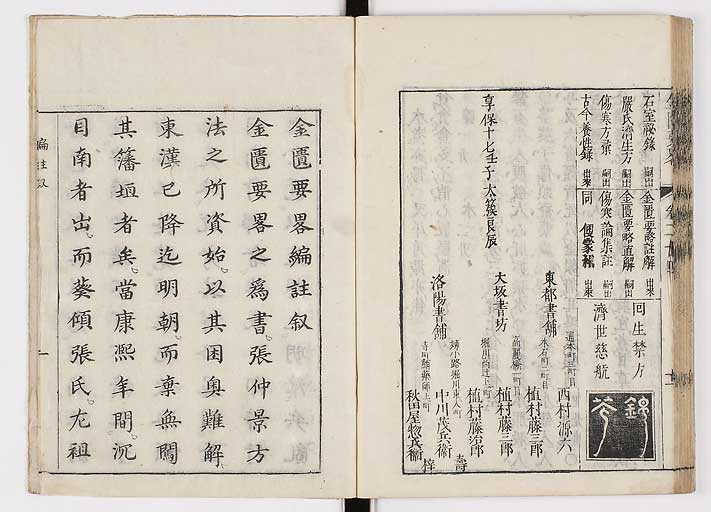 石室秘錄 出来
嚴氏濟生方 嗣出
傷寒方彙 嗣出
古今養性錄 出来
金匱要略註解 出来
金匱要略直解 嗣出
傷寒論集註 嗣出
同 便蒙 出来
回生禁方
濟世慈航
錦
享保十七壬子太簇良辰
東都書舗
通本町三町目
西村源六
本石町二町目
植村藤三郎
大坂書坊
高麗橋一町目
植村藤三郎
堀川
植村藤治郎
洛陽書舗
堀川東入町
中川茂兵衞
寺町
秋田屋惣兵衞
壽
梓
金匱要畧編註叙
金匱要畧之爲書張仲景方
法之所資始以其困奥難解
東漢已降迄明朝而棄無闖
其籓垣者矣當康熙年間沉
目南者出而葵傾張氏尤祖
編註叙
一